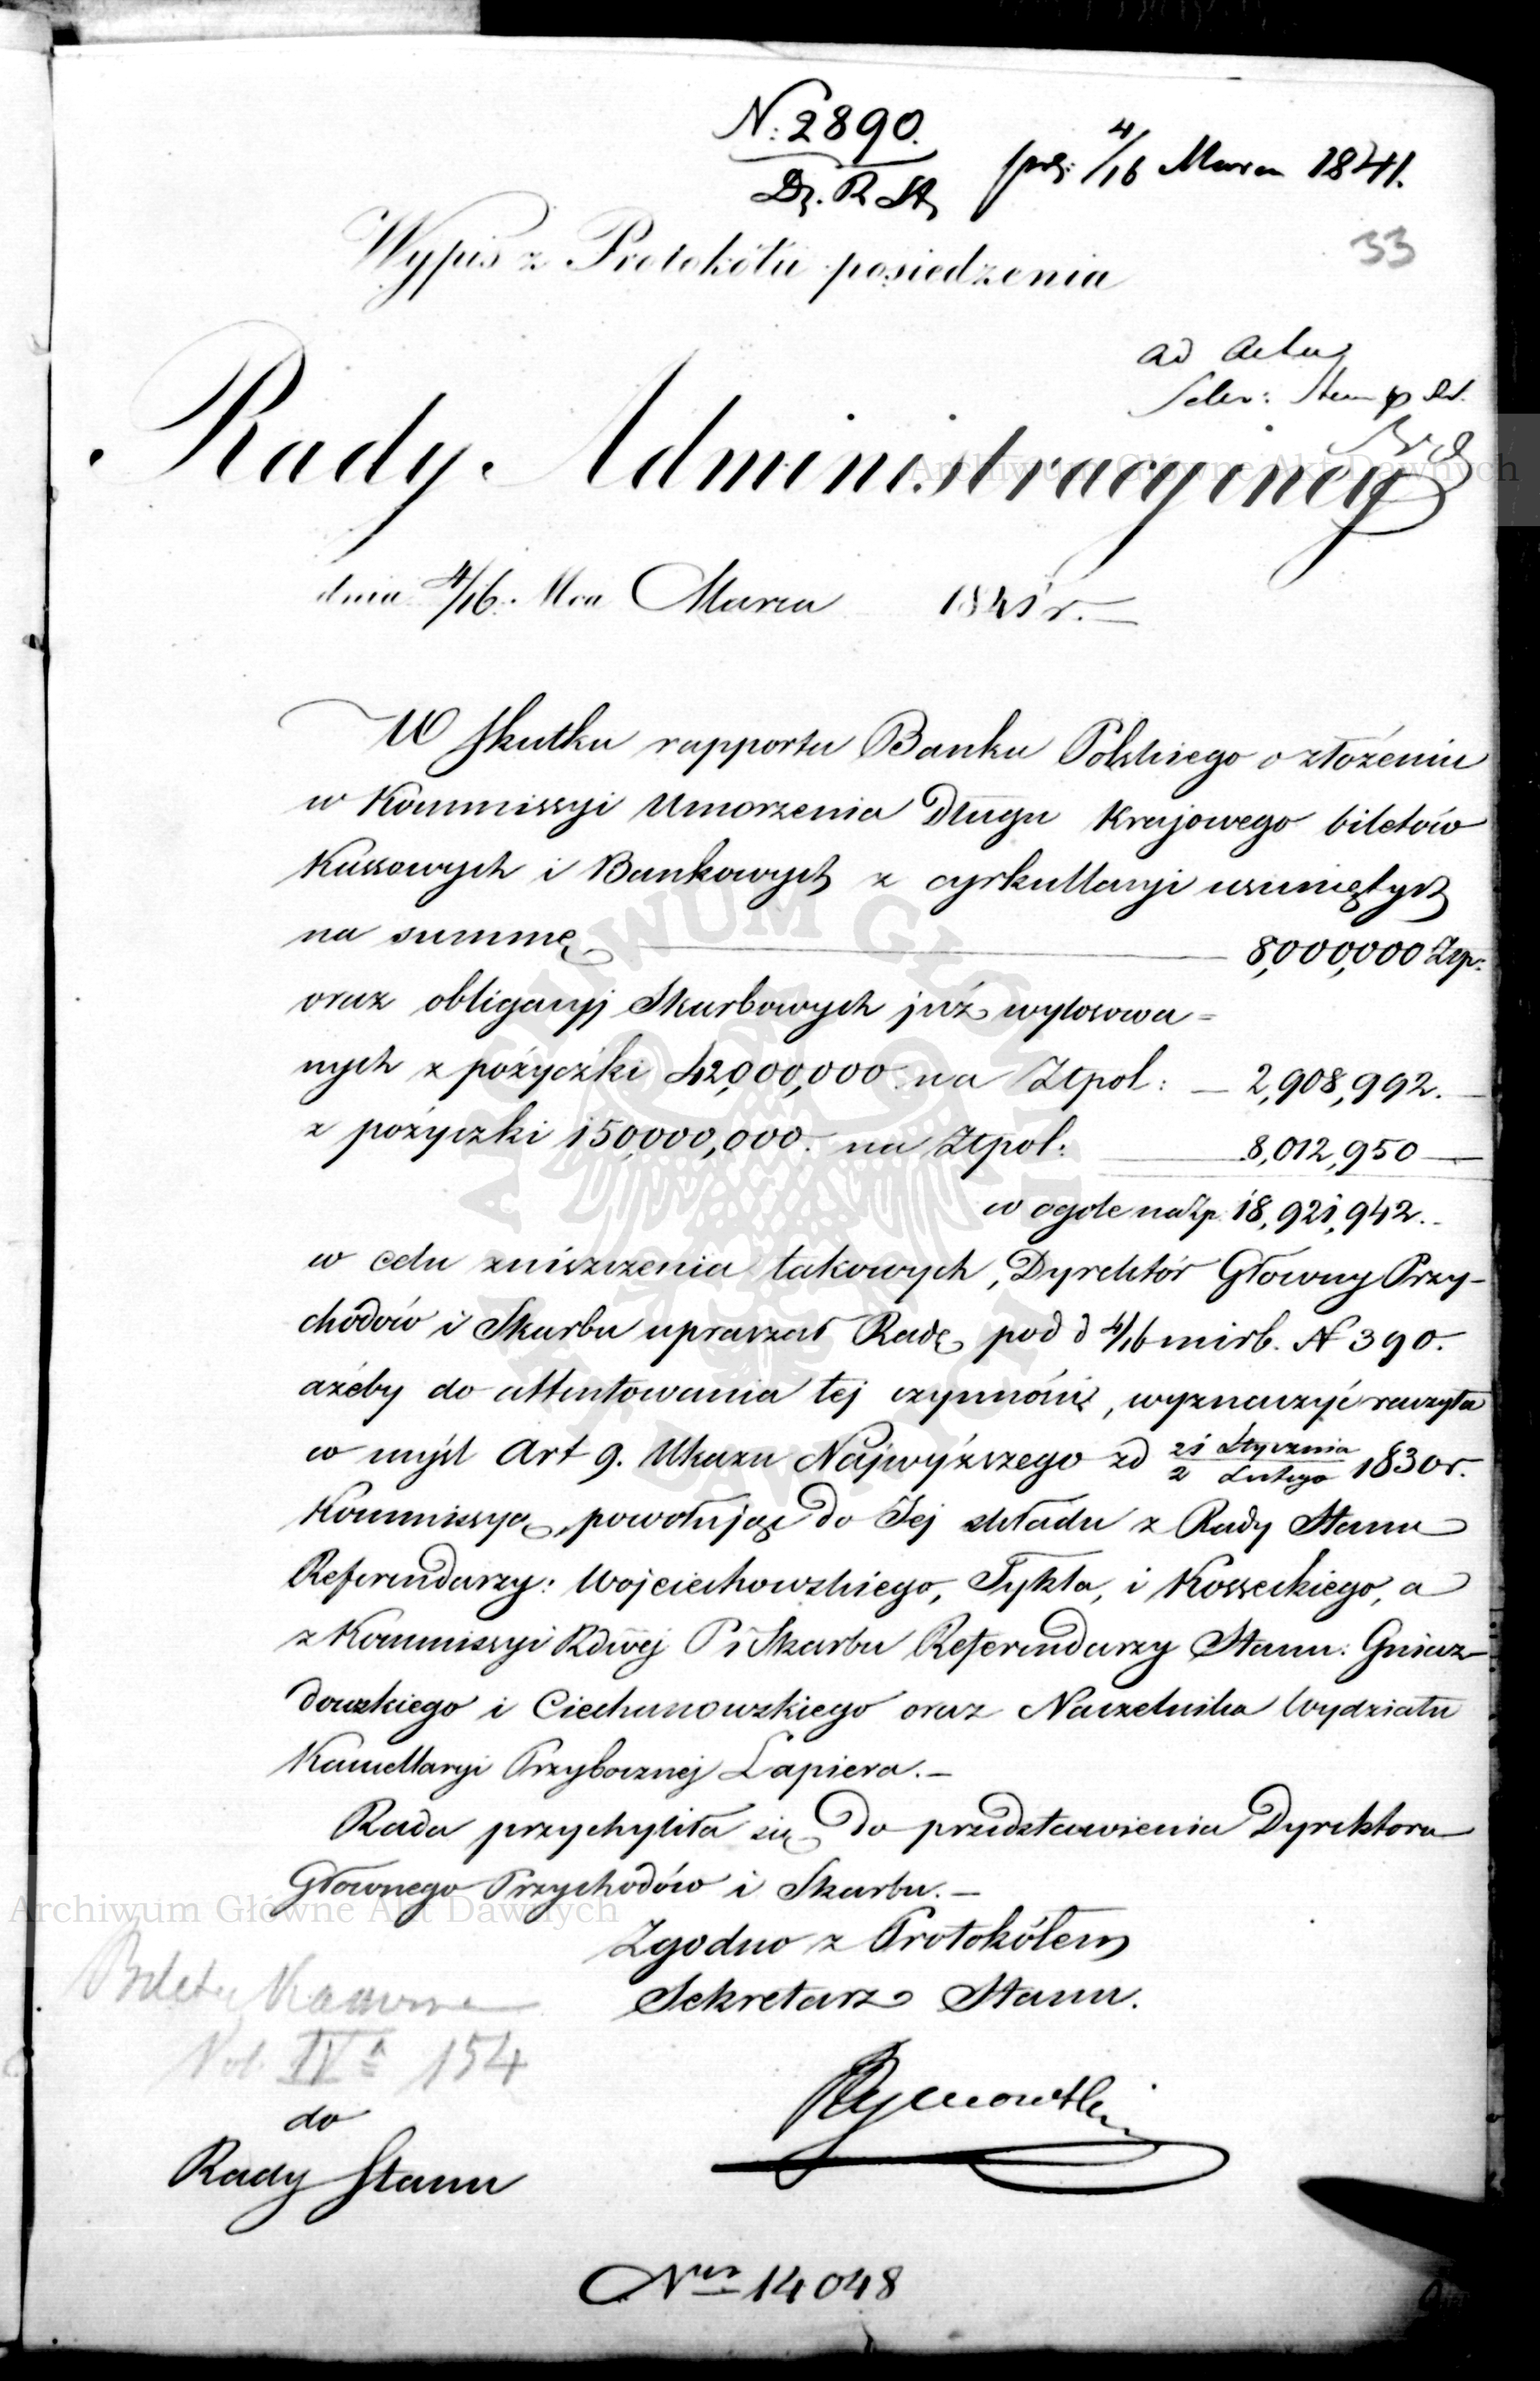 N: 2890.
Dz. R St
prez: 4/16 Marca 1841.
33
Wypis z Protokółu posiedzenia
ad acta
Rady Administracyjnej
dnia 4/16. Mca Marca 1841 r.—
W skutku rapportu Banku Polskiego o złożeniu
w Kommissyi Umorzenia Długu Krajowego biletów
Kassowych i Bankowych z cyrkullacyi usuniętych
na summę 8,000,000 Złp:
oraz obligacyj Skarbowych już wylosowa=
nych z pożyczki 42,000,000 na Złpol: — 2,908,992.—
z pożyczki 150,000,000. na Złpol: 8,012,950 —
w ogóle na Złp. 18,921,942.—
w celu zniszczenia takowych, Dyrektór Główny Przy-
chodów i Skarbu upraszał Radę pod d 4/16 m i r b. N 390.
ażeby do attentowania tej czynności, wyznaczyć raczyła
w myśl Art 9. Ukazu Najwyższego z d 21 Stycznia / 2 Lutego 1830 r.
Kommissyę, powołując do Jej składu z Rady Stanu
Referendarzy: Wojciechowskiego, Tykla, i Kosseckiego, a
z Kommissyi Rdwej P i Skarbu Referendarzy Stanu: Gniaz-
dowskiego i Ciechanowskiego oraz Naczelnika Wydziału
Kancellaryi Przybocznej Lapiera.—
Rada przychyliła się do przedstawienia Dyrektora
Głównego Przychodów i Skarbu.—
Zgodno z Protokółem
Sekretarz Stanu.
Bilety Kassowe
Vol. IV a 154
do
Rady Stanu
Nr 14048
Archiwum Główne Akt Dawnych
Archiwum Główne Akt Dawnych
ARCHIWUM GŁÓWNE AKT DAWNYCH